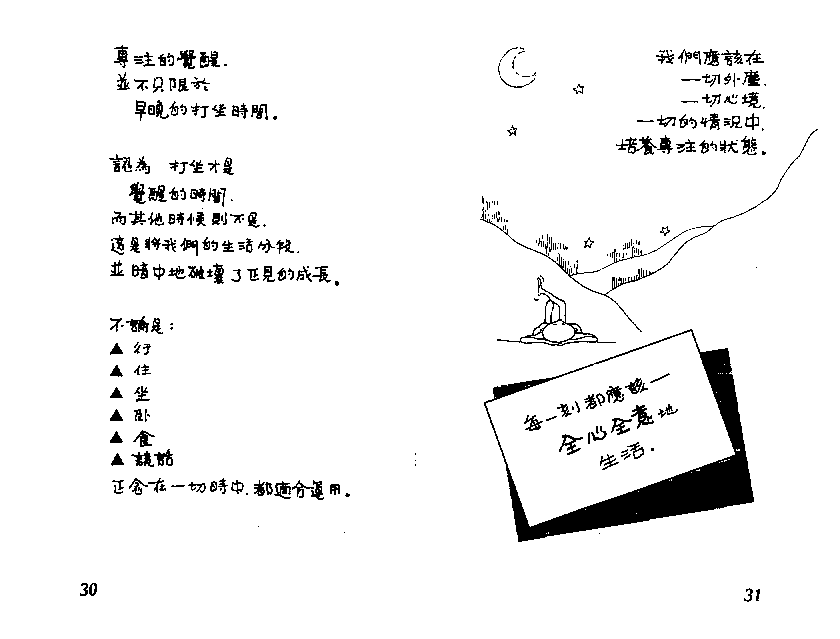 專注的覺醒.
並不只限於
早晚的打坐時間。
認為 打坐才是
覺醒的時間.
而其他時候則不是.
這是將我們的生活分段.
並暗中地破壞了正見的成長。
不論是:
▲ 行
▲ 住
▲ 坐
▲ 卧
▲ 食
▲ 談話
正念在一切時中.都適合運用。
30
我們應該在
一切外塵.
一切心境.
一切的情況中.
培養專注的狀態。
每一刻都應該一
全心全意地
生活.
31